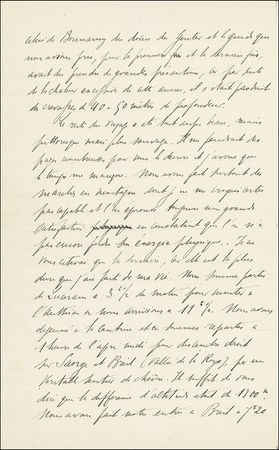 celui de Bonnamy des dômes de Goûter et le guide que
nous avons pris, pour la première et la dernière fois,
avait dû prendre de grandes précautions, car par suite
de la chaleur excessive de cette année, il s'était produit
des crevasses de 40 - 50 mètres de profondeur.
Le reste du voyage a été tout aussi beau, moins
pittoresque mais plus sauvage. Il me faudrait des
pages nombreuses pour vous le décrire et j'avoue que
le temps me manque. Nous avons fait surtout des
marches en montagne dont je ne me croyais certes
pas capable et l'on éprouve toujours une grande
satisfaction en constatant que l'on n'a
pas encore perdu son énergie physique. Je ne
vous citerai que la dernière, car elle est la plus
dure que j'ai faite de ma vie. Nous sommes partis
de Lucéram à 3 h 1/2 du matin pour monter à
l'Authion où nous arrivions à 11 h 1/2. Nous avons
déjeuné à la cantine et en sommes repartis à
1 heure de l'après midi pour descendre droit
sur Saorge et Breil (Vallée de la Roya) par un
véritable sentier de chèvre. Il suffit de vous
dire que la différence d'altitude était de 1800 m
Nous avons fait notre entrée à Breil à 7 h 20